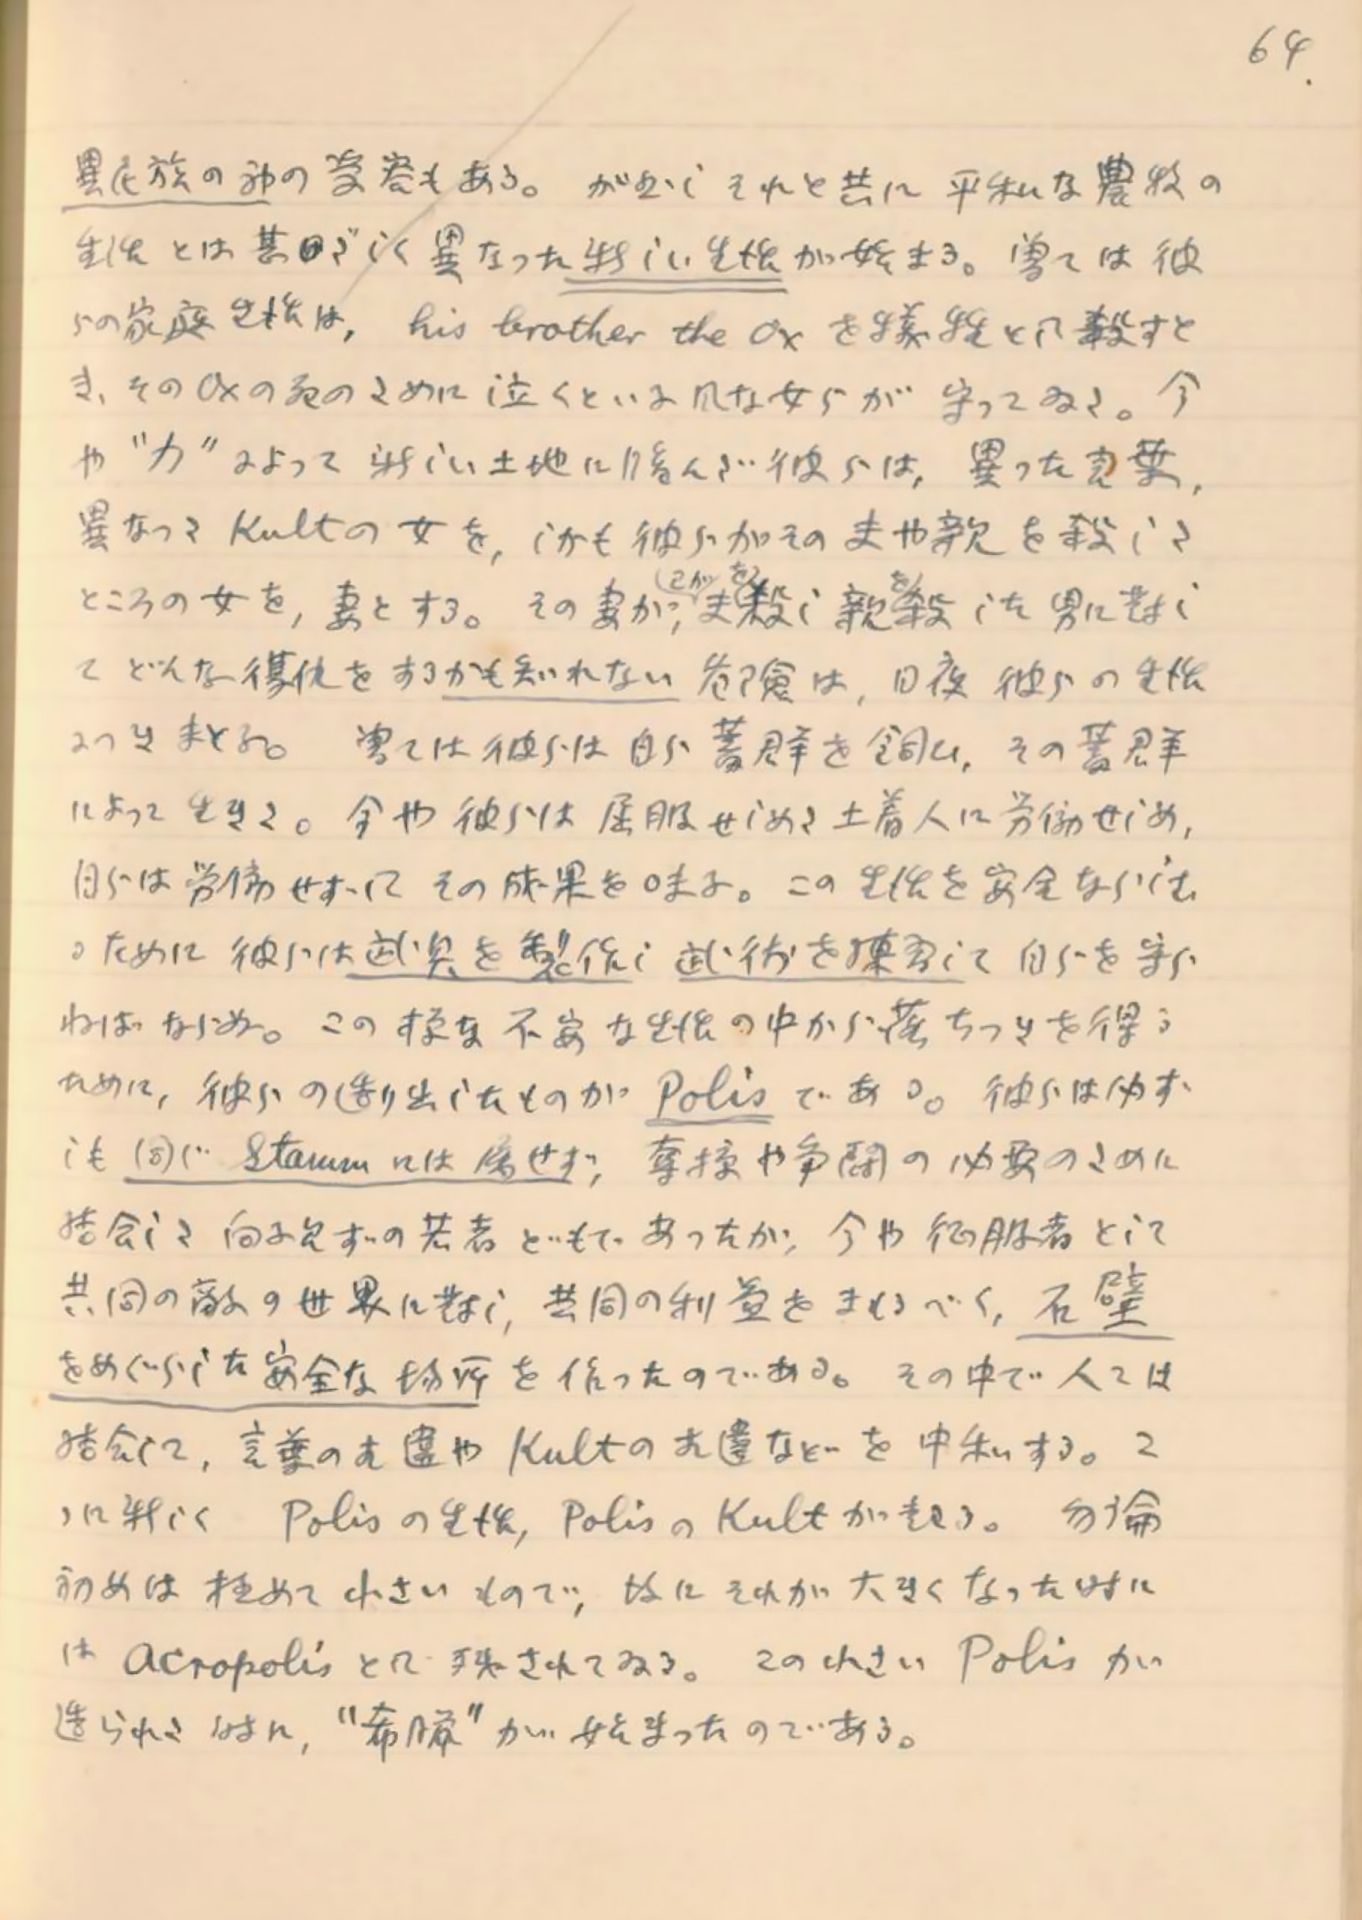 64.
異民族の神の受容もある。 が併しそれと共に 平和な農牧の
生活とは甚だしく異なった新しい生活が始まる。曽ては彼
らの家庭生活は, his brother the Ox を犠牲として殺すと
き、そのOxの死のために泣くといふ風な女らが 守ってゐた。今
や"力"によって 新しい土地に臨んだ彼らは, 異った言葉,
異なった Kultの女を, しかも彼らがその夫や親を殺した
ところの女を, 妻とする。 その妻が, 夫(を)殺し親(を)殺した男に対し
てどんな復仇をするかも知れない危険は, 日夜彼らの生活
につきまとふ。 曽ては彼らは自ら蓄群を飼ひ, その蓄群
によって生きた。今や彼らは屈服せしめた土着人に労働せしめ,
自らは労働せずしてその成果を味ふ。この生活を安全ならしむ
るために彼らは武具を製作し武術を練習して自らを守ら
ねばならぬ。この様な不安な生活の中から落ちつきを得る
ために, 彼らの造り出したものが Polis である。彼らは必ず
しも同じ Stamm には属せず, 奪掠や争闘の必要のために
結合した向ふ見ずの若者どもであったが, 今や征服者として
共同の敵の世界に対し, 共同の利益をまもるべく, 石壁
をめぐらした安全な場所を作ったのである。その中で人々は
結合して, 言葉の相違や Kultの相違などを中和する。こ
ゝに新しく Polisの生活, PolisのKultが起る。 勿論
初めは極めて小さいもので, 故にそれが大きくなった時に
は acropolisとして残されてゐる。 この小さい Polis が
造られた時に, "希臘"が始まったのである。